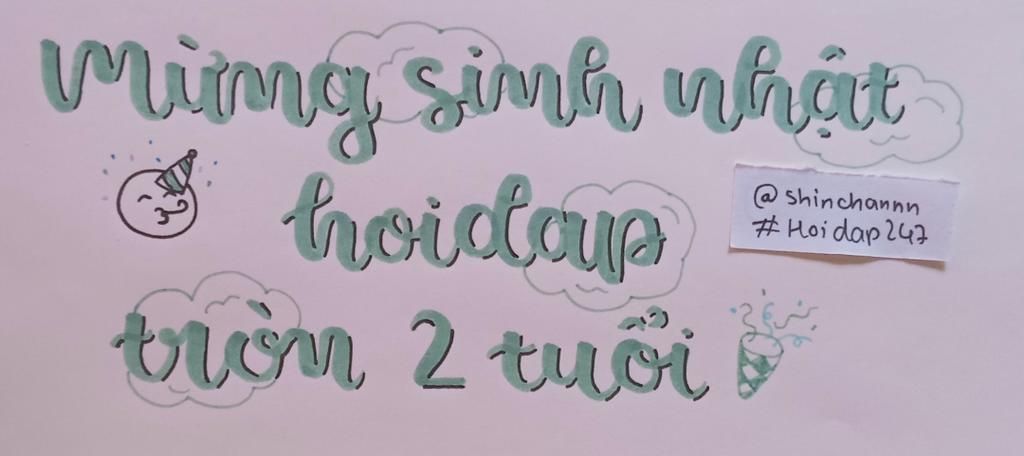 mừng sinh nhật
hoidap
@shinchannn
#Hoidap247
tròn 2 tuổi